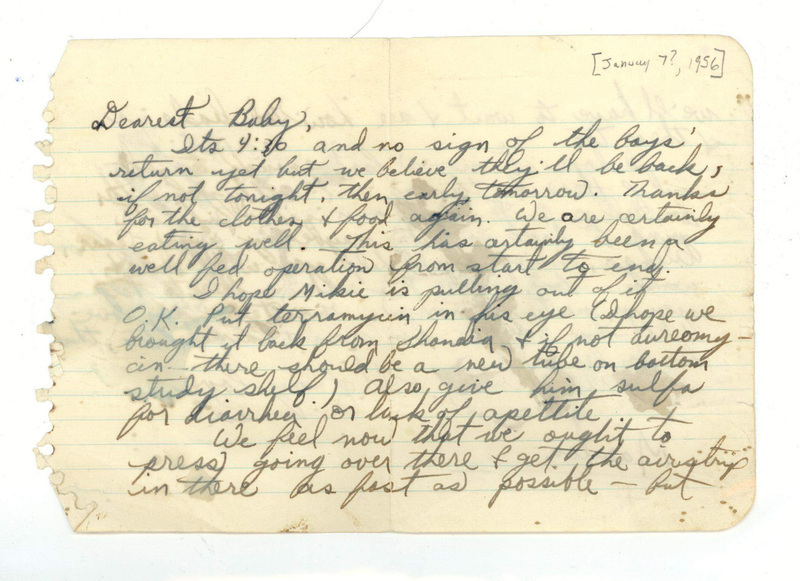 [January 7?, 1956]
Dearest Baby,
Its 4:30 and no sign of the boys'
return yet but we believe they'll be back,
if not tonight, then early tomorrow. Thanks
for the clothes & food again. We are certainly
eating well. This has certainly been a
well fed operation from start to end.
I hope Mikie is pulling out of it
O.K. Put terramycin in his eye (I hope we
brought it back from Shandia & if not aureomy-
cin – there should be a new tube on bottom
study shelf.) Also give him sulfa
for diarrhea or lack of apettite
We feel now that we ought to
press going over there & get the airstrip
in there as fast as possible – but